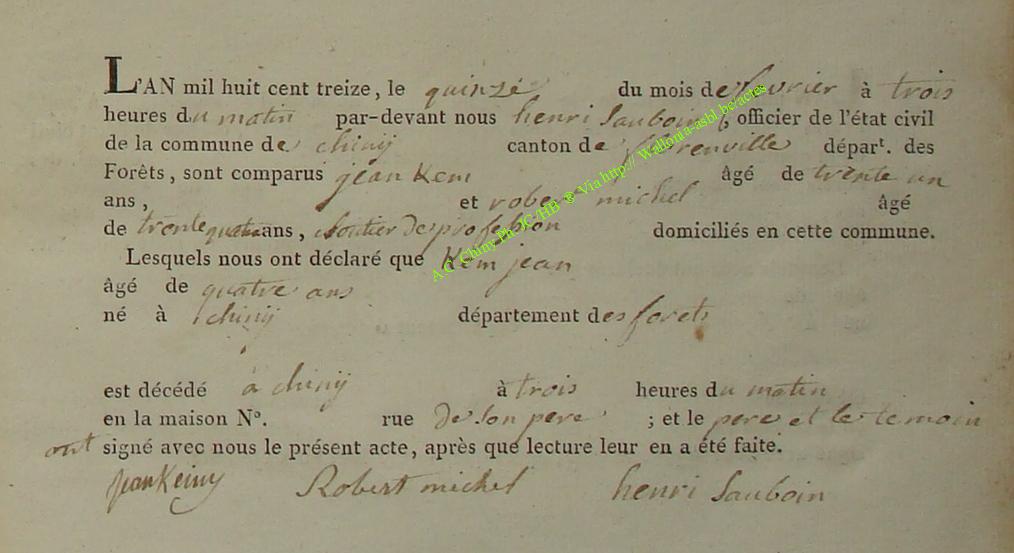 L'AN mil huit cent treize, le quinze du mois de fevrier à trois
heures du matin par-devant nous henri Sauboin, officier de l'état civil
de la commune de chiny canton de florenville départ. des
Forêts, sont comparus jean Kem âgé de trente un
ans, et robert michel âgé
de trente quatre ans, de profession domiciliés en cette commune.
Lesquels nous ont déclaré que Kem jean
âgé de quatre ans
né à chiny département des forets
est décédé à chiny à trois heures du matin
en la maison Nº. rue de son pere ; et le pere et le temoin
ont signé avec nous le présent acte, après que lecture leur en a été faite.
jean Keiny Robert michel henri Sauboin
A.C. Chiny Ph JC/HB ® Via http:// Wallonia-asbl.be/actes